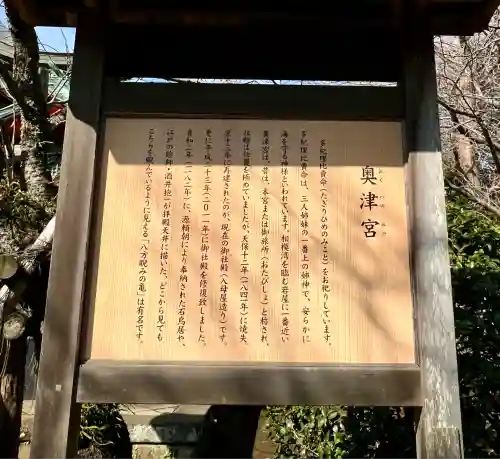 奥津宮
おくつみや
多紀理比賣命（たぎりひめのみこと）をお祀りしています。
多紀理比賣命は、三人姉妹の一番上の姉神で、安らかに
海を守る神様といわれています。相模湾を臨む岩屋に一番近い
奥津宮は、昔は、本宮または御旅所（おたびしょ）と称され、
社殿は壮麗を極めていましたが、天保十二年（一八四一年）に焼失、
翌十三年に再建されたのが、現在の御社殿（入母屋造り）です。
更に平成二十三年（二〇一一年）に御社殿を修復致しました。
養和二年（一一八二年）に、源頼朝により奉納された石鳥居や、
江戸の絵師・酒井抱一が拝殿天井に描いた、どこから見ても
こちらを睨んでいるように見える「八方睨みの亀」は有名です。